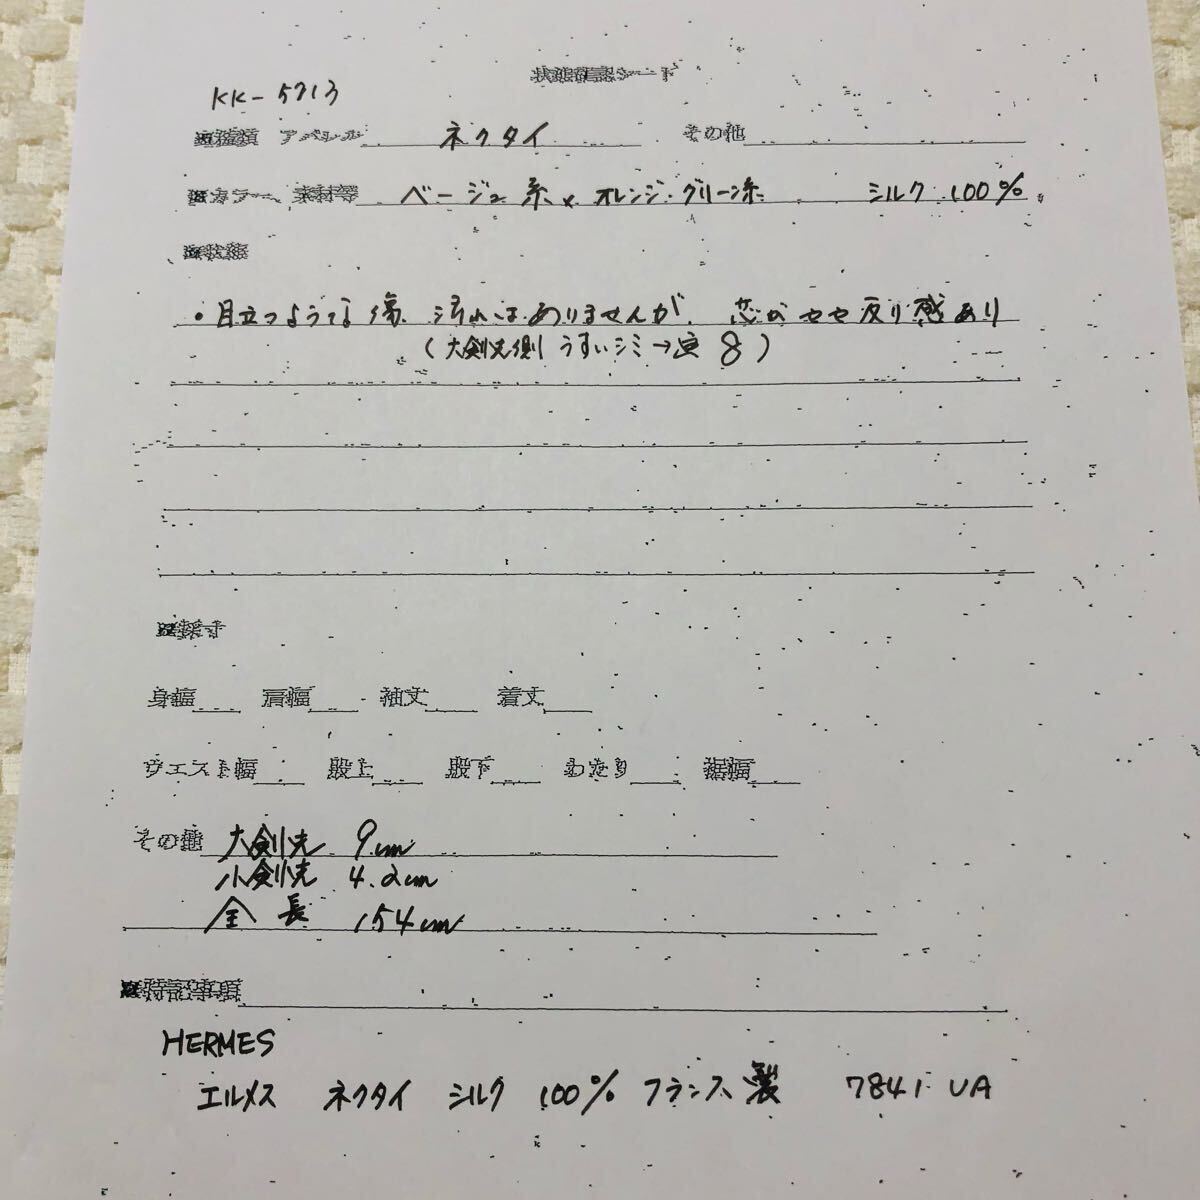 状態確認シード
KK-5713
種類 アパレル ネクタイ その他
カラー、素材等 ベージュ系 x オレンジ・グリーン系 シルク 100%
状態
・目立つような傷、汚れはありませんが、芯がやや反り感あり
(大剣先側 うすいシミ→ 8)
採寸
身幅 肩幅 袖丈 着丈
ウエスト幅 股上 股下 わたり 裾幅
その他 大剣先 9cm
小剣先 4.2cm
全長 154cm
特記事項
HERMES
エルメス ネクタイ シルク 100% フランス製 7841 UA